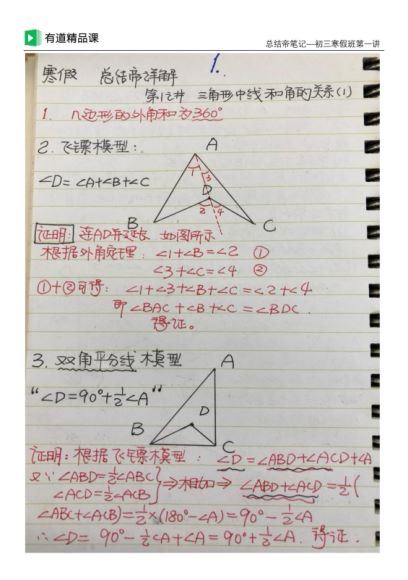 有道精品课
总结帝笔记—初三寒假班第一讲
寒假 总结帝详解 1.
第1讲 三角形中线和角的关系(1)
1. n边形的外角和为360°
2. 飞镖模型:
∠D=∠A+∠B+∠C
A
1 3
D
2 4
B C
证明: 连AD并延长 如图所示
根据外角定理: ∠1+∠B=∠2 ①
∠3+∠C=∠4 ②
①+②可得: ∠1+∠3+∠B+∠C=∠2+∠4
即∠BAC+∠B+∠C=∠BDC.
得证.
3. 双角平分线模型
"∠D=90°+½∠A"
A
D
B C
证明: 根据飞镖模型: ∠D=∠ABD+∠ACD+∠A
又∵ ∠ABD=½∠ABC
∠ACD=½∠ACB } ⇒相加⇒ ∠ABD+∠ACD=½(
∠ABC+∠ACB)=½×(180°-∠A)=90°-½∠A
∴∠D= 90°-½∠A+∠A=90°+½∠A. 得证.